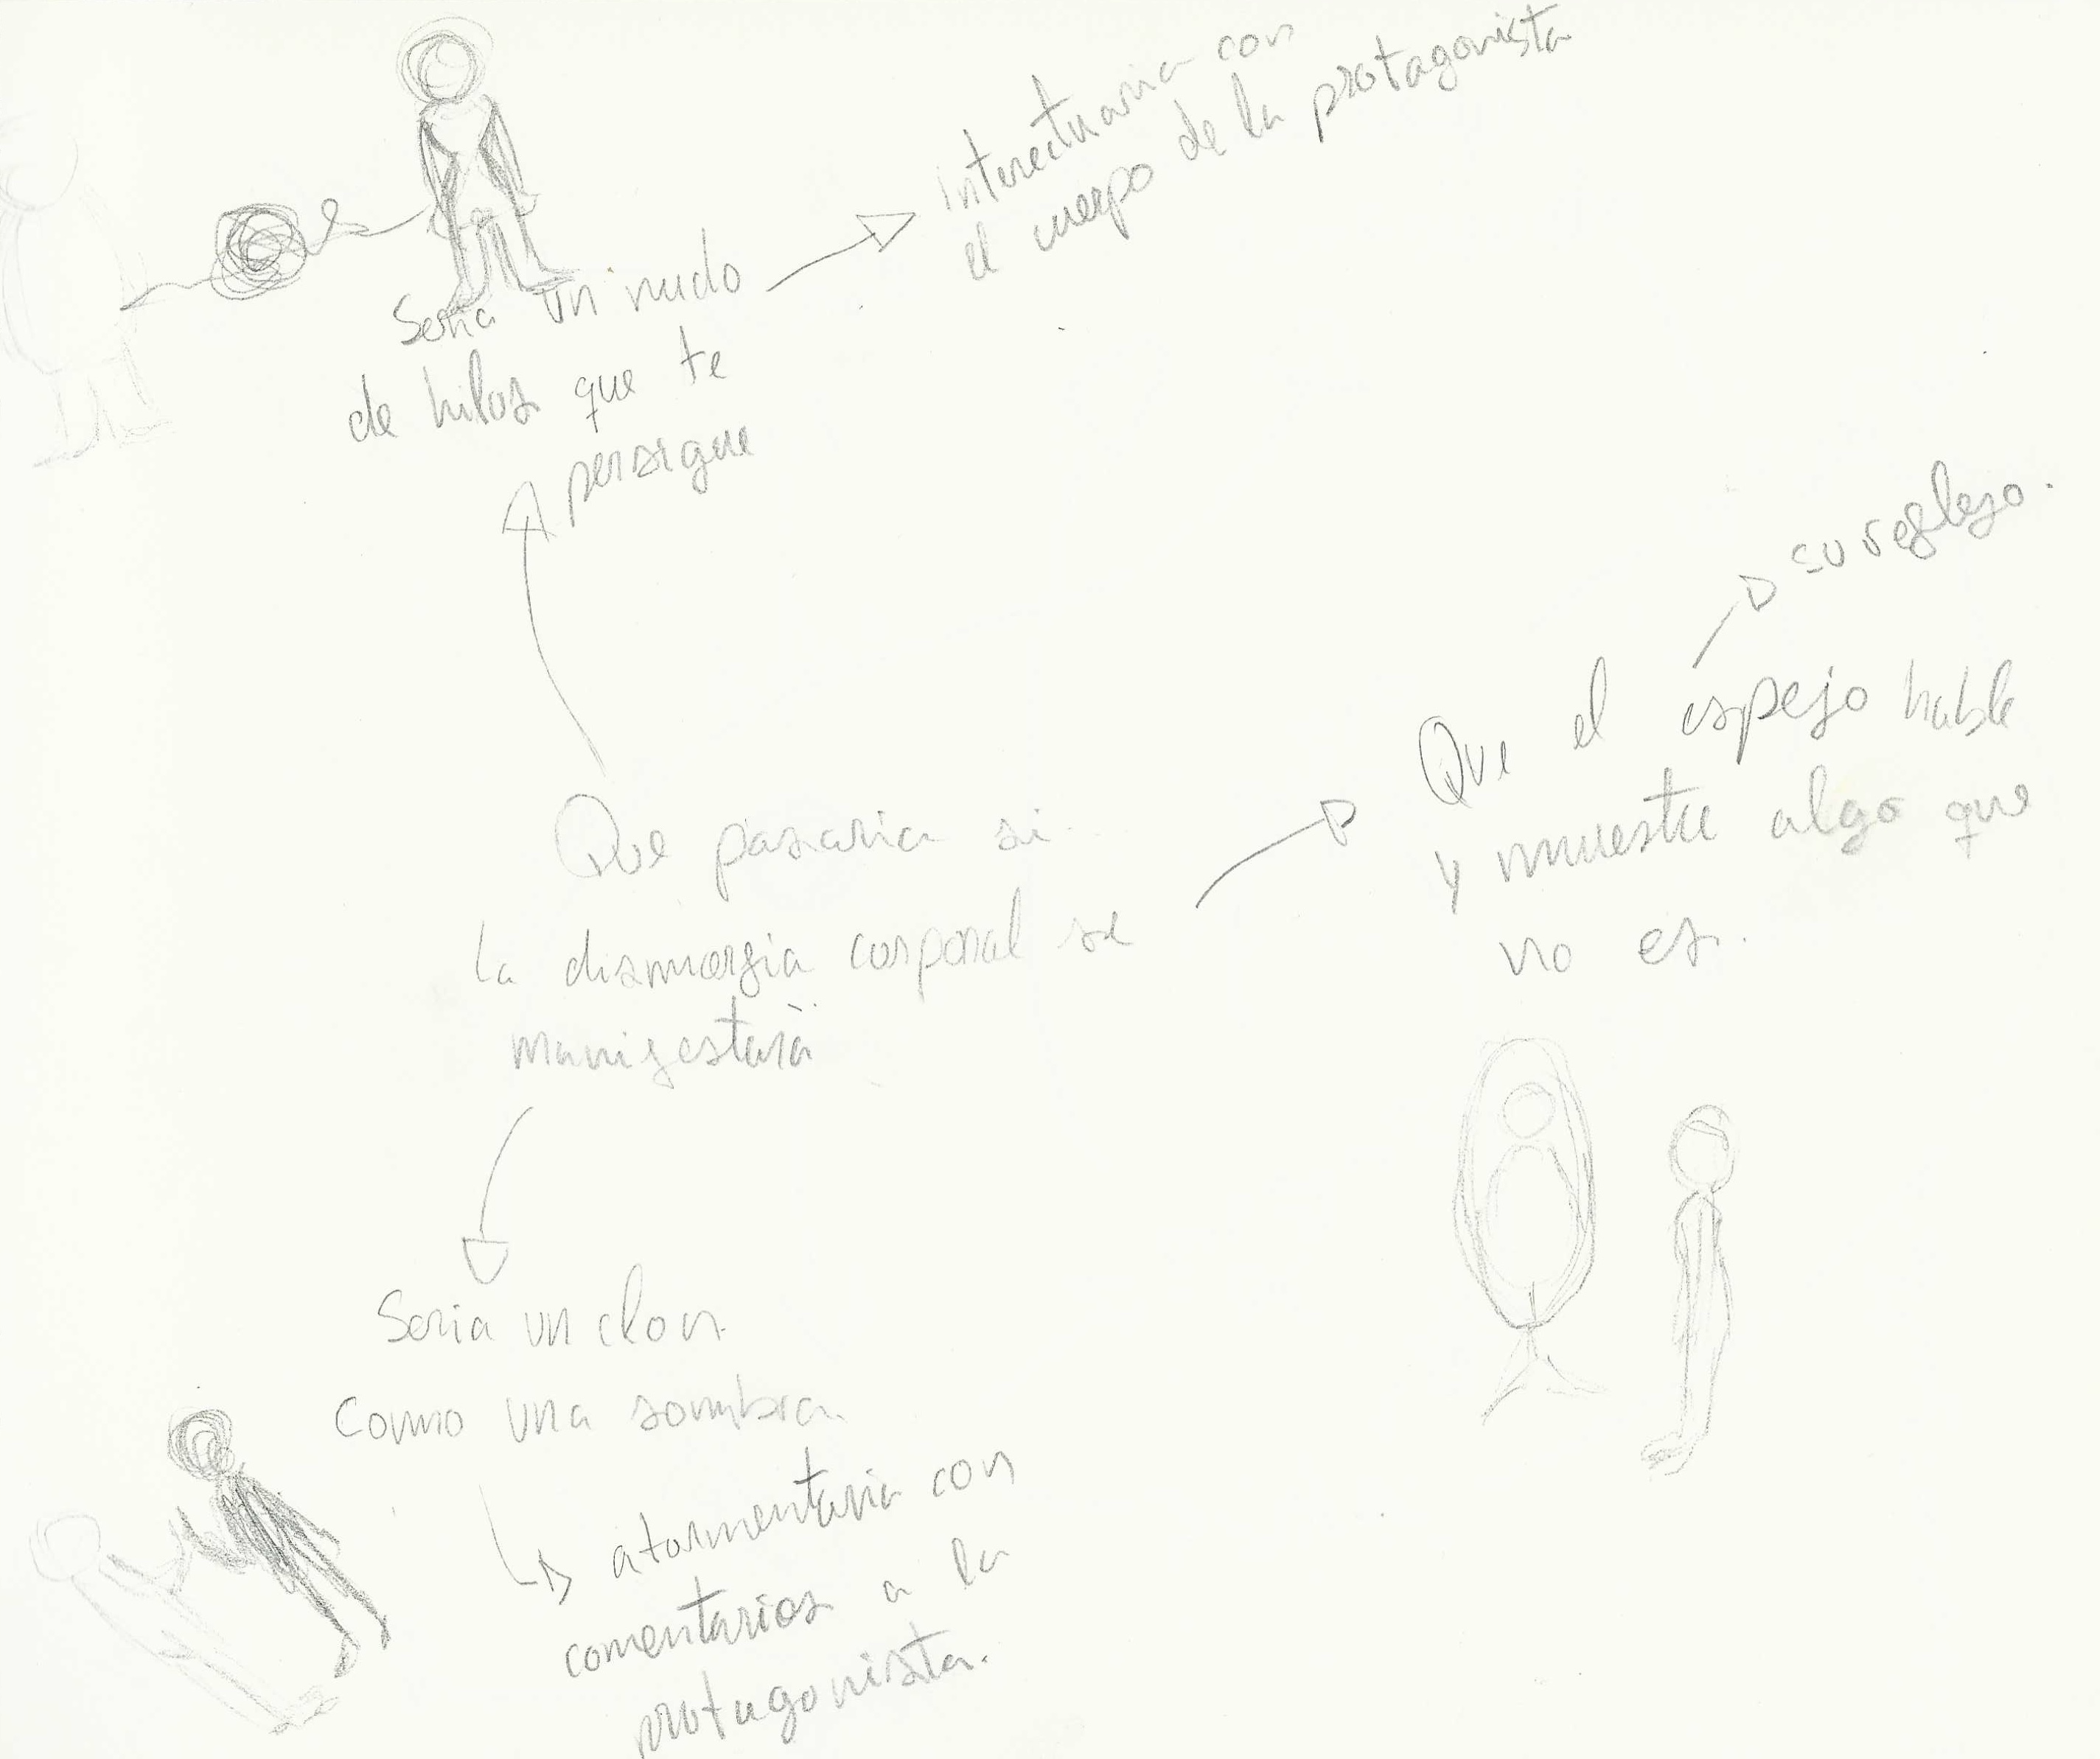 interectuaria con
el cuerpo de la protagonista
Seria un nudo
de hilos que te
persigue
su reflejo.
Que el espejo hable
y muestre algo que
no es.
Que pasaria si
la dismorfia corporal se
manifestara
Seria un clon
como una sombra
atormentaria con
comentarios a la
protagonista.